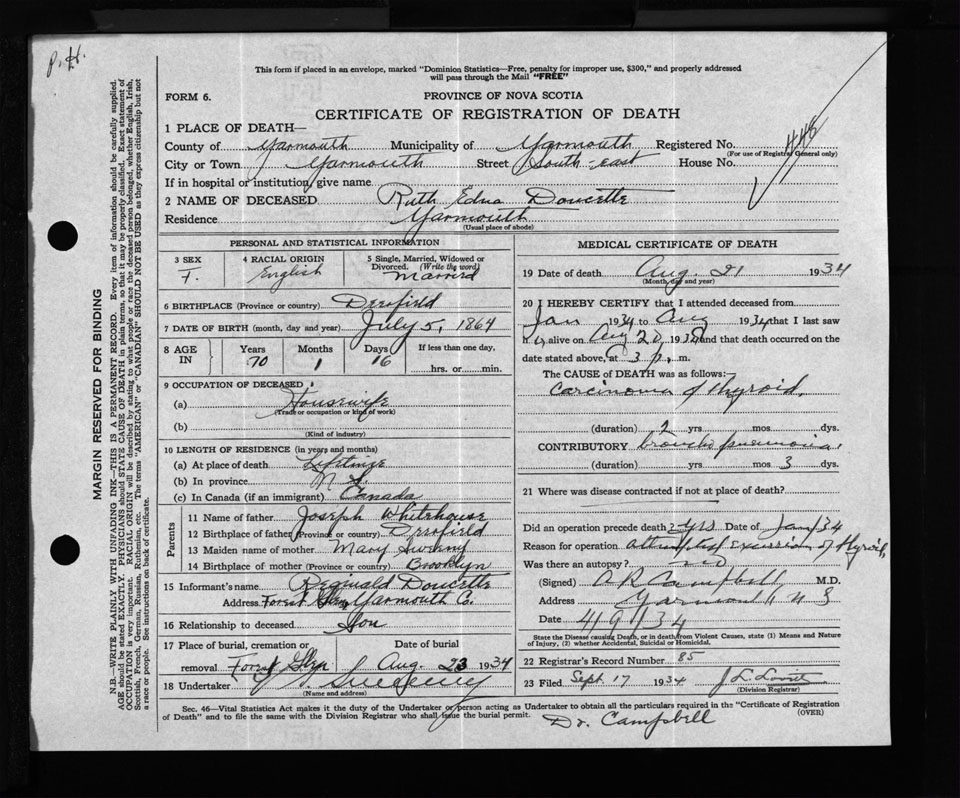 P.H.
This form if placed in an envelope, marked "Dominion Statistics—Free, penalty for improper use, $300," and properly addressed
will pass through the Mail "FREE"
FORM 6.
PROVINCE OF NOVA SCOTIA
CERTIFICATE OF REGISTRATION OF DEATH
1 PLACE OF DEATH—
County of Yarmouth Municipality of Yarmouth Registered No. 448
(For use of Registrar General only)
City or Town Yarmouth Street South-east House No.
If in hospital or institution, give name
2 NAME OF DECEASED Ruth Edna Doucette
Residence Yarmouth
(Usual place of abode)
MARGIN RESERVED FOR BINDING
N.B.—WRITE PLAINLY WITH UNFADING INK—THIS IS A PERMANENT RECORD. Every item of information should be carefully supplied.
AGE should be stated EXACTLY. PHYSICIANS should STATE CAUSE OF DEATH in plain terms, so that it may be properly classified. Exact statement of
OCCUPATION is very important. RACIAL ORIGIN will be described by stating to what people or race the deceased person belonged, whether English, Irish,
Scottish, French, German, Russian, Ruthenian, etc. The terms "AMERICAN" or "CANADIAN" SHOULD NOT BE USED as they express citizenship but not
a race or people. See instructions on back of certificate.
PERSONAL AND STATISTICAL INFORMATION
3 SEX F.
4 RACIAL ORIGIN English
5 Single, Married, Widowed or
Divorced. (Write the word)
Married
6 BIRTHPLACE (Province or country) Deerfield
7 DATE OF BIRTH (month, day and year) July 5, 1864
8 AGE IN Years 70 Months 1 Days 16 If less than one day,
hrs. or min.
9 OCCUPATION OF DECEASED
(a) Housewife
(Trade or occupation or kind of work)
(b)
(Kind of industry)
10 LENGTH OF RESIDENCE (in years and months)
(a) At place of death Lifetime
(b) In province N.S.
(c) In Canada (if an immigrant) Canada
Parents
11 Name of father Joseph Whitehouse
12 Birthplace of father (Province or country) Deerfield
13 Maiden name of mother Mary Sweeny
14 Birthplace of mother (Province or country) Brooklyn
15 Informant's name Reginald Doucette
Address Forest Glen Yarmouth C.
16 Relationship to deceased Son
17 Place of burial, cremation or
removal Forest Glen
Date of burial
Aug. 23 1934
18 Undertaker Sweeney
(Name and address)
MEDICAL CERTIFICATE OF DEATH
19 Date of death Aug. 21 1934
(Month, day and year)
20 I HEREBY CERTIFY that I attended deceased from
Jan 1934 to Aug 1934 that I last saw
her alive on Aug 20 1934 and that death occurred on the
date stated above, at 3 p. m.
The CAUSE OF DEATH was as follows:
Carcinoma of thyroid.
(duration) 2 yrs mos dys.
CONTRIBUTORY broncho pneumonia
(duration) yrs mos 3 dys.
21 Where was disease contracted if not at place of death?
Did an operation precede death 2 yrs Date of Jan/34
Reason for operation attempted excision of thyroid
Was there an autopsy? no
(Signed) A R Campbell M.D.
Address Yarmouth N S
Date 4/9/34
State the Disease causing Death, or in death from Violent Causes, state (1) Means and Nature
of Injury, (2) whether Accidental, Suicidal or Homicidal.
22 Registrar's Record Number 85
23 Filed Sept. 17 1934
(Division Registrar)
Sec. 46—Vital Statistics Act makes it the duty of the Undertaker or person acting as Undertaker to obtain all the particulars required in the "Certificate of Registration
of Death" and to file the same with the Division Registrar who shall issue the burial permit. (OVER)
Dr. Campbell